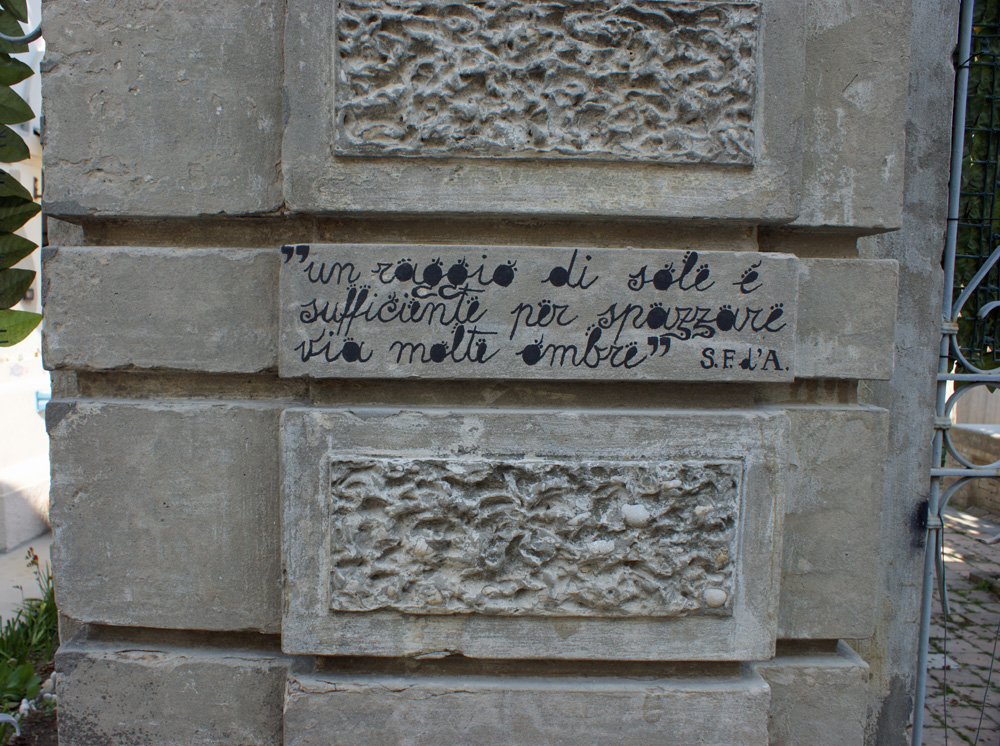 "un raggio di sole é
sufficiente per spazzare
via molte ombre" S.F.d'A.